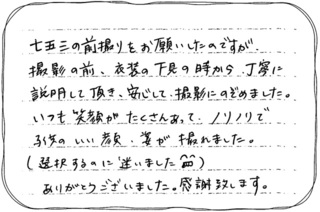 七五三の前撮りをお願いしたのですが、
撮影の前、衣装の下見の時から、丁寧に
説明して頂き、安心して、撮影にのぞめました。
いつも笑顔がたくさんあって、ノリノリで
とてもいい顔、姿が撮れました。
(選択するのに迷いました)
ありがとうございました。感謝致します。